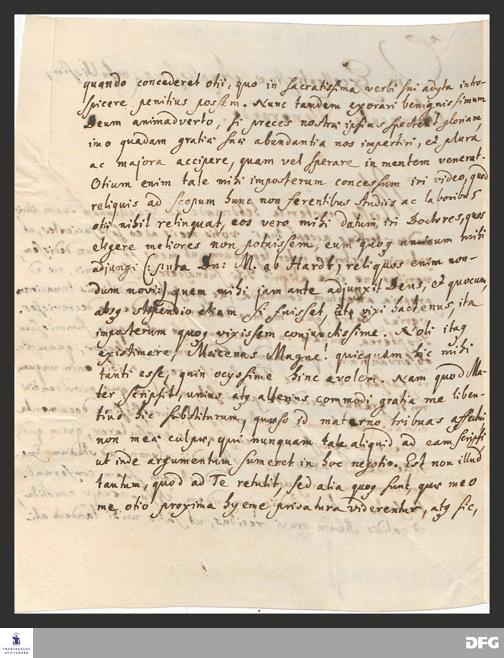 quando concederet otii, quo in sacratissima verbi sui adyta intro-
spicere penitius possem. Nunc tandem exorari benignissimum
Deum animadverto, si preces nostræ ipsius spectent gloriam,
imo quadam gratiæ suæ abundantia nos impertiri, et plura
ac majora accipere, quam vel sperare in mentem venerat.
Otium enim tale mihi imposterum concessum iri video, quod
reliquis ad scopum hunc non ferentibus studiis ac laboribus
otii nihil relinquat, eos vero mihi datum iri Doctores, quos
eligere meliores non potuissem, eum quoq mihi
adjungi (: puta Dn: M. ab Hardt, reliquos enim non-
dum novi:) quem mihi jam ante adjunxit Deus, et quocum,
absq stipendio etiam si fuisset, vixi hactenus, ita
imposterum quoq vixissem conjunctissime. Noli itaq
existimare, Mæcenas Magne! quicquam hic mihi
tanti esse, quin ocyssime hinc avolem. Nam quod Ma-
ter scripsit, unius atq alterius commodi gratia me liben-
tius hic substiturum, quæso id materno tribuas affectui
non meæ culpæ, qui nunquam tale aliquid ad eam scripsi
ut inde argumentum sumeret in hoc negotio. Est non illud
tantum, quod ad Te retulit, sed alia quoq sunt, quæ meo
me otio proxima hyeme privatura viderentur, atq sic,
FRANCKESCHE
STIFTUNGEN
DFG